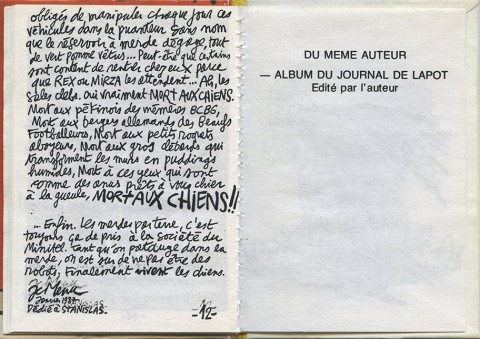 obligés de manipuler chaque jour ces
véhicules dans la puanteur sans nom
que le réservoir à merde dégage, tout
de vert pomme vêtus... Peut-être que certains
sont content de rentrer chez eux parce
que REX ou MIRZA les attendent... Ah, les
sales clebs. oui vraiment MORT AUX CHIENS.
Mort aux pékinois des mémères BCBG,
Mort aux bergers allemands des Beaufs
Footballeurs, Mort aux petits roquets
aboyeurs, Mort aux gros débords qui
transforment les murs en puddings
humides, Mort à ces yeux qui sont
comme des anus prêts à vous chier
à la gueule, MORT AUX CHIENS!!
... Enfin. Les merdes par terre, c'est
toujours ça de pris à la société du
Minitel. tant qu'on patauge dans la
merde, on est sur de ne pas être des
robots, Finalement vivent les chiens.
Janvier 1987
Dédié à STANISLAS.
-12-
DU MEME AUTEUR
— ALBUM DU JOURNAL DE LAPOT
Edité par l'auteur